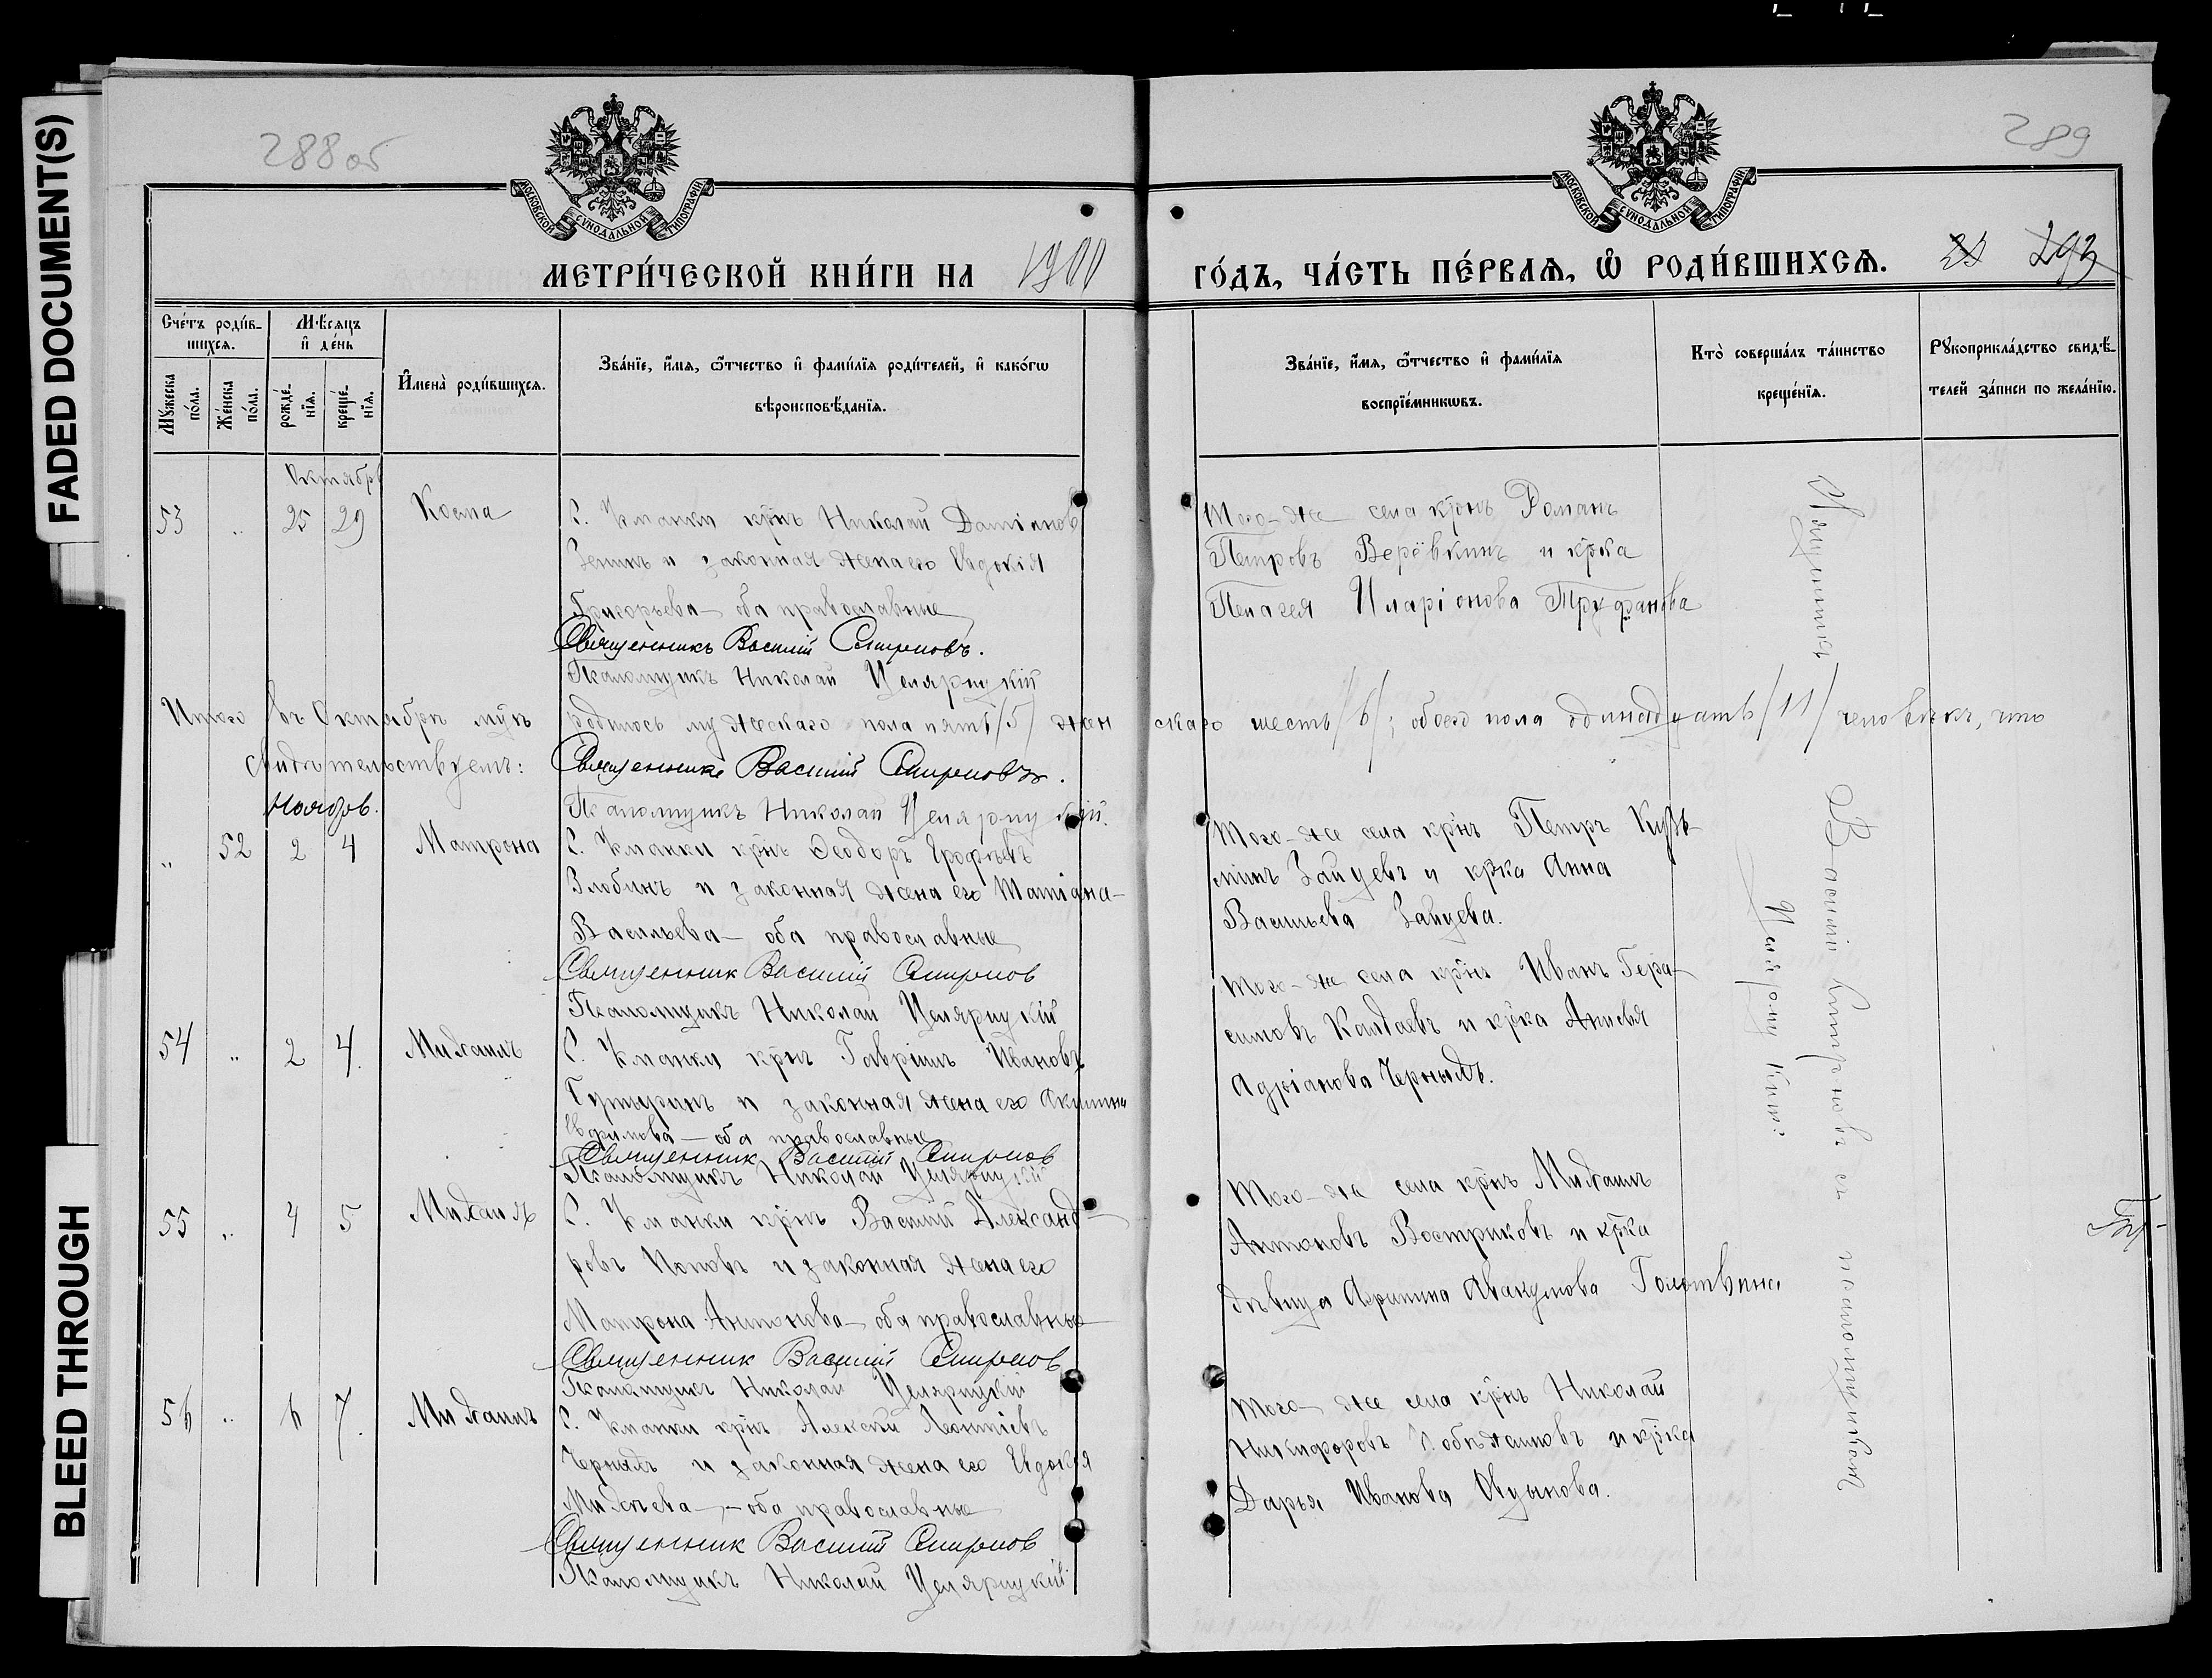 FADED DOCUMENT(S)
BLEED THROUGH
288 об
289
МОСКОВСКОЙ СѴНОДАЛЬНОЙ ТИПОГРАФІИ
МОСКОВСКОЙ СѴНОДАЛЬНОЙ ТИПОГРАФІИ
МЕТРИ́ЧЕСКОЙ КНИ́ГИ НА 1900
ГО́ДЪ, ЧА́СТЬ ПЕ́РВАѦ, Ѽ РОДИ́ВШИХСѦ.
293
Сче́тъ роди́в-
шихсѧ.
Мꙋ́жеска
по́ла.
Же́нска
по́ла.
Мѣ́сѧцъ
и҆ де́нь
рожде́-
нїѧ.
креще́-
нїѧ.
И҆мена̀ роди́вшихсѧ.
Зва́нїе, и҆́мѧ, ѻ҆́тчество и҆ фами́лїѧ роди́телей, и҆ како́гѡ
вѣроисповѣ́данїѧ.
Зва́нїе, и҆́мѧ, ѻ҆́тчество и҆ фами́лїѧ
воспрїе́мникѡвъ.
Кто̀ соверша́лъ та́инство
креще́нїѧ.
Рꙋкоприкла́дство свидѣ́-
телей за́писи по жела́нїю.
Октябрь
53 „ 25 29 Косма
С. Уманки кр̃нъ Николай Даміановъ
Зенинъ и законная жена его Евдокія
Григорьева — оба православные
Священникъ Василій Смирновъ.
Псаломщикъ Николай Целярицкій
Того-же села кр̃нъ Романъ
Петровъ Верёвкинъ и кр̃ка
Пелагея Иларіонова Труфанова
Итого въ Октябрѣ м̃цѣ родилось мужескаго пола пять /5/ женскаго шесть /6/; обоего пола одинадцать /11/ человѣкъ, что
свидѣтельствуемъ: Священникъ Василій Смирновъ.
Псаломщикъ Николай Целярицкій.
Ноябрь.
„ 52 2 4 Матрона
С. Уманки кр̃нъ Ѳеодоръ Ерофѣевъ
Злобинъ и законная жена его Татіана
Васильева — оба православные
Священник Василій Смирнов
Псаломщикъ Николай Целярицкій
Того-же села кр̃нъ Петръ Кузь-
минъ Зайцевъ и кр̃ка Анна
Васильева Зайцева.
54 „ 2 4. Михаилъ
С. Уманки кр̃нъ Гавріилъ Ивановъ
и законная жена его Акилина
Евфимова — оба православные
Священник Василій Смирнов
Псаломщикъ Николай Целярицкій
Того-же села кр̃нъ Иванъ Гера-
симовъ Калдаевъ и кр̃ка Анисья
Адріанова Черныхъ.
55 „ 4 5 Михаилъ
С. Уманки кр̃нъ Василій Александ-
ровъ Поповъ и законная жена его
Матрона Антонова — оба православные
Священник Василій Смирнов
Псаломщикъ Николай Целярицкій
Того-же села кр̃нъ Михаилъ
Антоновъ Востриковъ и кр̃ка
дѣвица Авакумова
56 „ 6 7. Михаилъ
С. Уманки кр̃нъ Алексѣй Леонтіевъ
Черныхъ и законная жена его Евдокія
Михѣева — оба православные
Священник Василій Смирнов
Псаломщикъ Николай Целярицкій
Того-же села кр̃нъ Николай
Никифоровъ и кр̃ка
Дарья Иванова
Священникъ
Василій Смирновъ съ псаломщикомъ
Целярицкимъ